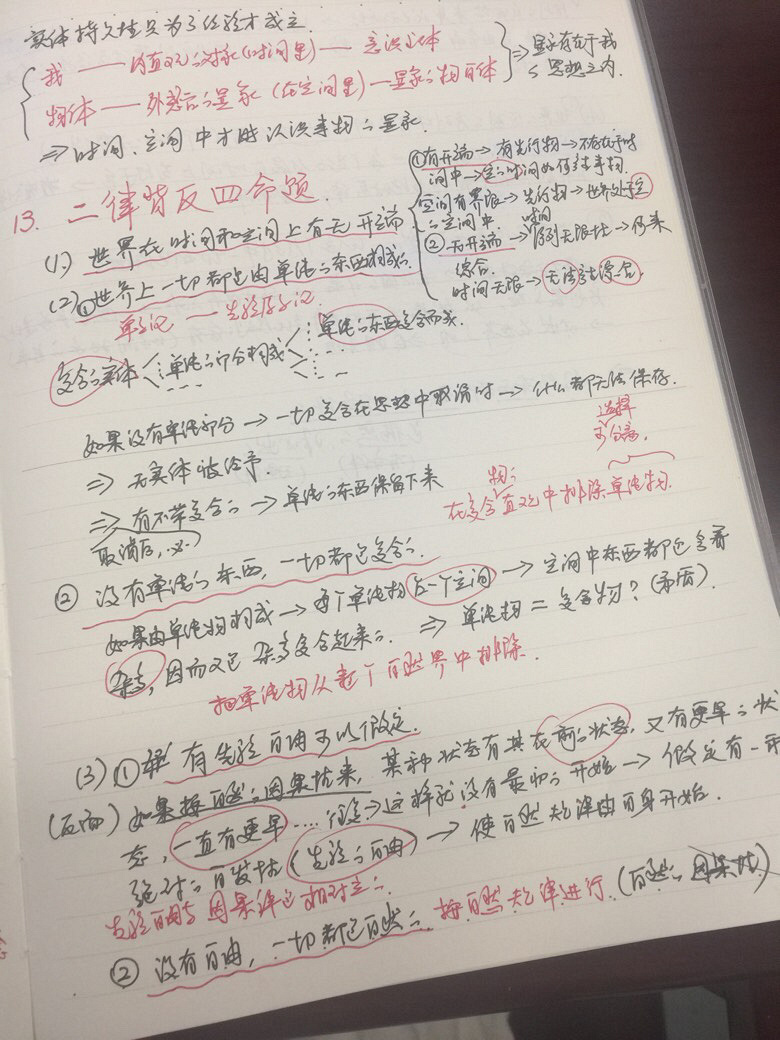 实体持久性只为了经验才成立.
我 —— 内直观的对象(时间里) —— 意识主体
物体 —— 外感官的显象(在空间里) — 显象的物自体
⇒ 显象存在于我的思想之内.
⇒ 时间、空间中才能认识事物的显象.
13. 二律背反四命题
(1) 世界在时间和空间上有无开端
①有开端 → 有先行物 → 不存在于时
间中 → 空的时间如何产生事物.
空间有界限 → 先行物 → 世界处于空
的空间中
时间
② 无开端 → 序列无限性 → 何来
综合.
时间无限 → 无法完成综合.
(2) ①世界上一切都是由单纯的东西构成的.
单子论 — 先验原子论.
复合的实体 单纯的部分构成 单纯的东西复合而成.
如果没有单纯部分 → 一切复合在思想中取消时 → 什么都无法保存.
⇒ 无实体被给予.
⇒ 有不带复合的 → 单纯的东西保留下来
取消后,
物的
在复合直观中排除单纯物.
② 没有单纯的东西, 一切都是复合的.
如果由单纯物构成 → 每个单纯物占一个空间 → 空间中东西都包含着
杂多, 因而又是杂多复合起来的. ⇒ 单纯物 = 复合物? (矛盾).
把单纯物从整个自然界中排除.
(3) ① 有先验自由可以假定.
(反面) 如果按自然的因果性来, 某种状态有其在前的状态, 又有更早的状
态, 一直有更早 .... 往复 → 这样就没有最初的开始 → 假定有一种
绝对的自发性 (先验的自由) → 使自然规律由自身开始.
先验自由与因果律是相对立的.
② 没有自由, 一切都是自然的. 按自然规律进行. (自然的因果性)